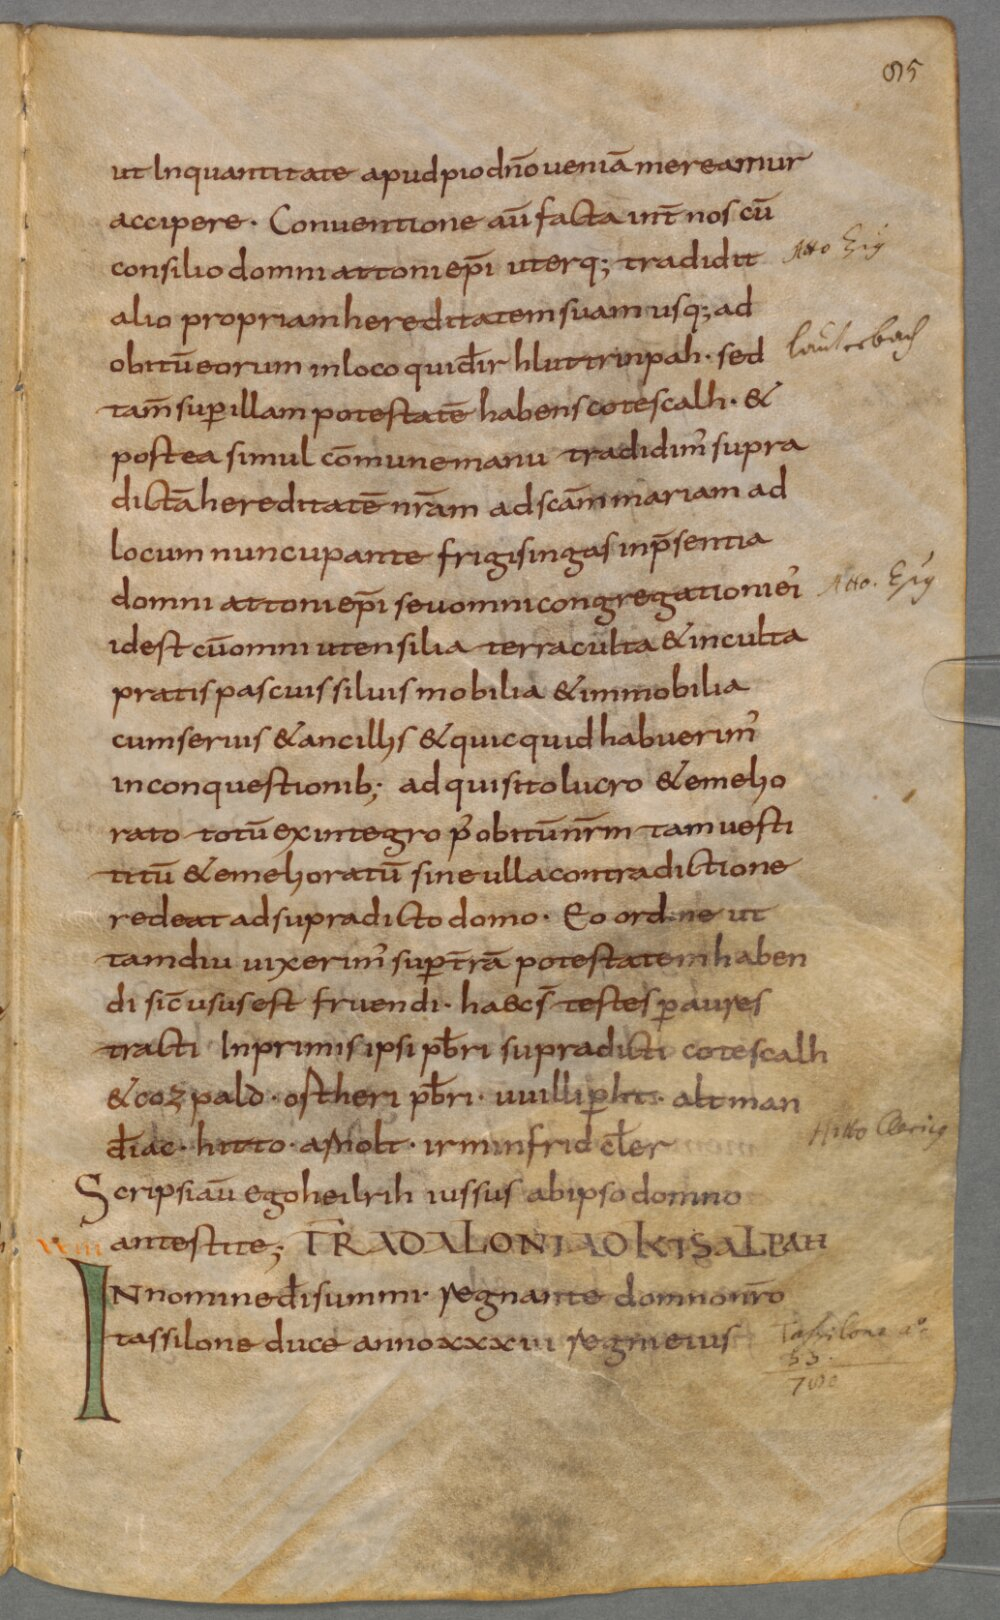 95
ut In quantitate apud pio dn̄o veniā mereamur
accipere · Conventione aū facta int̄ nos cū
consilio domni attoni ep̄i uterq; tradidit
Atto Ep̄s
alio propriam hereditatem suam usq; ad
obitū eorum in loco qui dr̄ hluttrinpah · sed
Lauterbach
tam̄ sup̄ illam potestatē habens cotescalh · &
postea simul cōmune manu tradidim᾽ supra
dictā hereditatē nr̄am ad scām mariam ad
locum nuncupante frigisingas in p̄sentia
domni attoni ep̄i seu omni congregationi ei᾽
Atto. Ep̄s
id est cū omni utensilia terra culta & inculta
pratis pascuis siluis mobilia & immobilia
cum seruis & ancillis & quicquid habuerim᾽
in conquestionib; adquisito lucro & emelio
rato totū ex integro p᾽ obitū nr̄m tam uesti
titū & emelioratū sine ulla contradictione
redeat ad supradicto domo · Eo ordine ut
tamdiu uixerim᾽ sup̄ tr̄ā potestatem haben
di sic̄ usus est fruendi · haec s̄ testes p̄ aures
tracti In primis ipsi pb̄ri supradicti cotescalh
& cozpald · ostheri pb̄ri · uuillip̄ht · altman
diac̄ · hitto · arnolt · irminfrid cl̄er
Hitto Clericus
Scripsi aū ego heilrih iussus ab ipso domno
antestite; TRAD ALONI AD KISALPAH
IN nomine dī summi · regnante domno nr̄o
tassilone duce anno xxxiii regni eius
Tassilone aº
33.